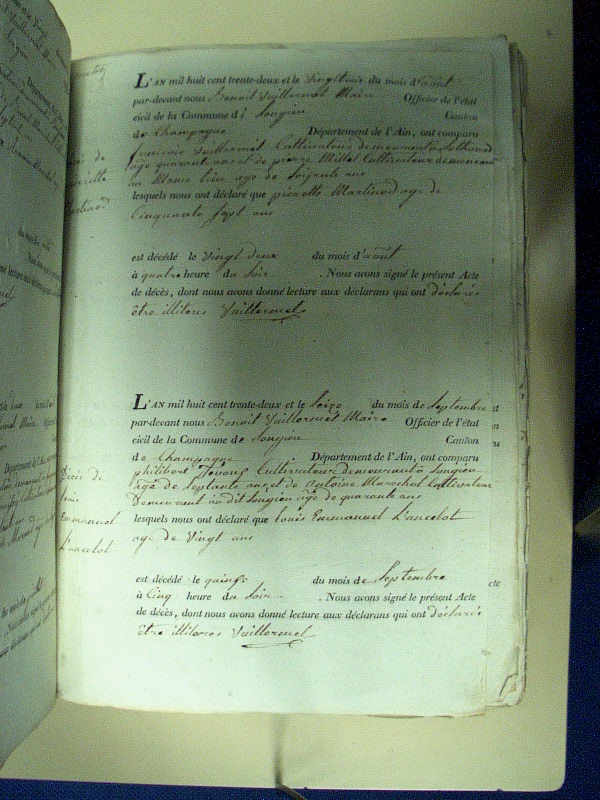 L'AN mil huit cent trente-deux et le vingttrois du mois d'août
par-devant nous Benoit Vuillermet Maire Officier de l'état
civil de la Commune de Songieu Canton
de Champagne Département de l'Ain, ont comparu
françois Vuillermet Cultivateur demeurant à
age quarante ans et de pierre Millet Cultivateur demeurant
au Meme lieu age de soixante ans
lesquels nous ont déclaré que pierrette Martinod age de
Cinquante sept ans
est décédé le vingt deux du mois d'août
à quatre heure du soir . Nous avons signé le présent Acte
de décès, dont nous avons donné lecture aux déclarans qui ont déclarés
être illiterés Vuillermet
L'AN mil huit cent trente-deux et le seize du mois de septembre
par-devant nous Benoit Vuillermet Maire Officier de l'état
civil de la Commune de Songieu Canton
de Champagne Département de l'Ain, ont comparu
philibert Cultivateur demeurant à Songieu
âge de septante ans et de Antoine Marechal Cultivateur
Demeurant au dit Songieu age de quarante ans
lesquels nous ont déclaré que Louis Emmanuel L'ancelot
age de Vingt ans
est décédé le quinze du mois de septembre
à Cinq heure du soir . Nous avons signé le présent Acte
de décès, dont nous avons donné lecture aux déclarans qui ont déclarés
être illiterés Vuillermet
Décès de
Louis
Emmanuel
L'ancelot